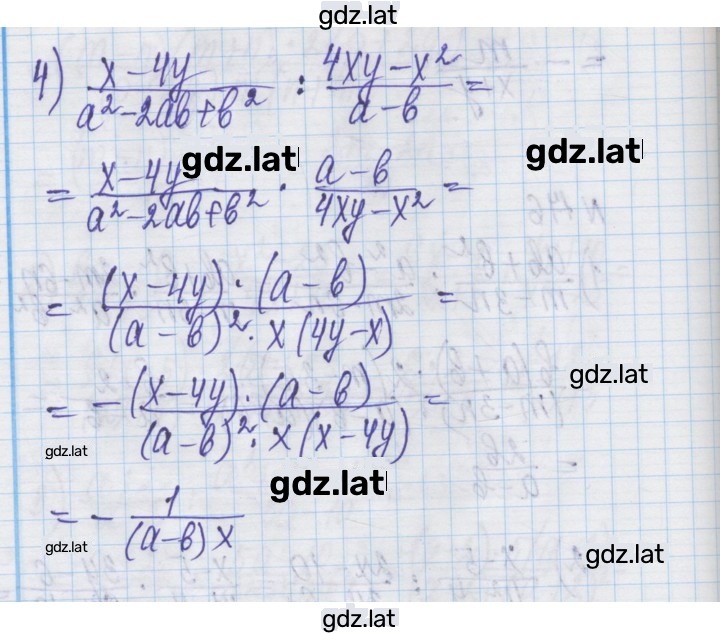 gdz.lat
4) (x-4y)/(a²-2ab+b²) : (4xy-x²)/(a-b) =
gdz.lat gdz.lat
= (x-4y)/(a²-2ab+b²) · (a-b)/(4xy-x²) =
= ((x-4y)·(a-b))/((a-b)²·x(4y-x)) =
gdz.lat
= -((x-4y)·(a-b))/((a-b)²·x(x-4y)) =
gdz.lat
gdz.lat
= -1/((a-b)x)
gdz.lat
gdz.lat
gdz.lat